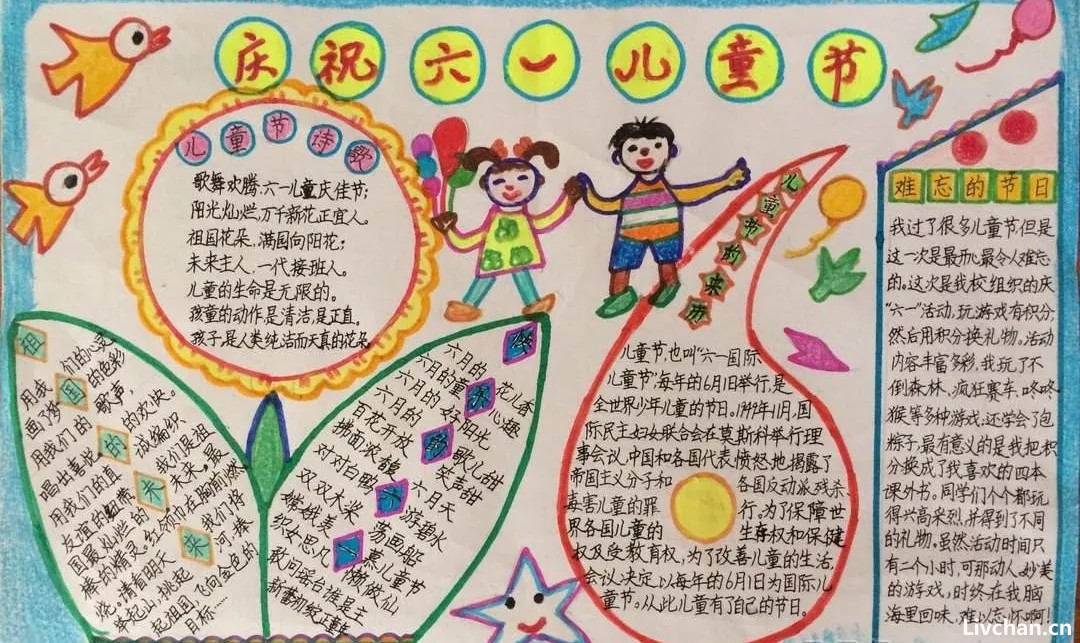 庆祝六一儿童节
儿童节诗歌
歌舞欢腾,六一儿童庆佳节;
阳光灿烂,万千新花正宜人。
祖国花朵,满园向阳花;
未来主人,一代接班人。
儿童的生命是无限的。
孩童的动作是清洁,是正直,
孩子,是人类纯洁而天真的花朵
祖国的未来
用我们的心灵
画了梦的色彩
用我们的歌声,
唱出喜悦的欢快。
用我们的真
友谊的
我们是祖
国最灿烂的未来。最
棒的精灵。红领巾在胸前燃
烧。清看明天我们将
举起山,挑起
起祖国,飞向金色的
目标……
六月的花儿香
六月的童心趣
六月的好阳光
百花开放笑声甜
歌儿甜
对对白鸥六月天
双双木桨游碧水
荡画船
六一儿童节
新蕾初绽正重生
儿童节的来历
儿童节,也叫“六一国际
儿童节”,每年的6月1日举行,是
全世界少年儿童的节日。1949年11月,国
际民主妇女联合会在莫斯科举行理
事会议,中国和各国代表愤怒地揭露了
帝国主义分子和各国反动派残杀、
毒害儿童的罪行。为了保障世
界各国儿童的生存权和保健
权及受教育权,为了改善儿童的生活,
会议决定以每年的6月1日为国际儿
童节。从此儿童有了自己的节日。
难忘的节日
我过了很多儿童节,但是
这一次是最开心最令人难忘
的。这次是我校组织的庆
“六一”活动,玩游戏有积分,
然后用积分换礼物。活动
内容丰富多彩,我玩了不
倒森林,疯狂赛车,咚咚
猴等多种游戏,还学会了包
粽子,最有意义的是我把积
分换成了我喜欢的四本
课外书。同学们个个都玩
得兴高采烈,并得到了不同
的礼物。虽然活动时间只
有二个小时,可那动人、妙美
的游戏,时终在我脑
海里回味,难以忘怀啊!
Livchan.cn